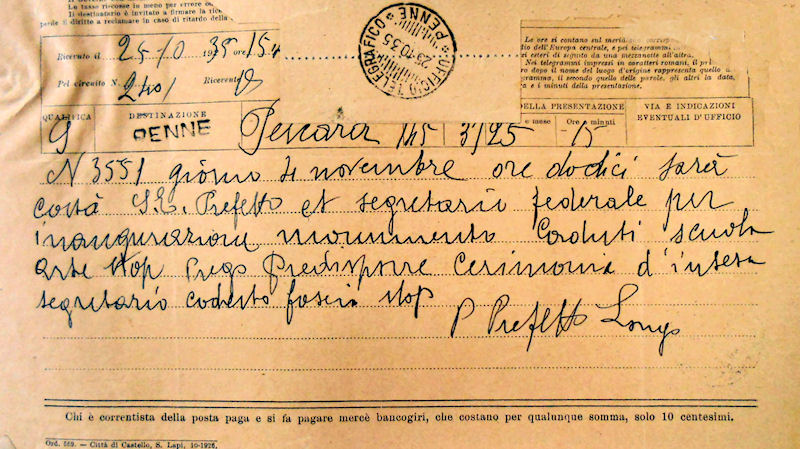 Le tasse riscosse in meno per errore o
Il destinatario è invitato a firmare la rice
perde il diritto a reclamare in caso di ritardo della
Ricevuto il 25-10 1935 ore 15,4
Pel circuito N. 2401 Ricevente
UFFICIO TELEGRAFICO * PENNE *
25.10.35
Le ore si contano sul meridiano
dell'Europa centrale, e pei telegrammi
di seguito da una mezzanotte all'altra.
Nei telegrammi impressi in caratteri romani, il
dopo il nome del luogo d'origine rappresenta quello
gramma, il secondo quello delle parole, gli altri la data,
e i minuti della presentazione.
QUALIFICA DESTINAZIONE DELLA PRESENTAZIONE VIA E INDICAZIONI
EVENTUALI D'UFFICIO
e mese Ore minuti
S PENNE Pescara 145 31/25 15
N 3551 giorno 4 novembre ore dodici sarà
costà S.E. Prefetto et segretario federale per
inaugurazione monumento Caduti scuola
arte stop Prego Predisporre Cerimonia d'intesa
segretario codesto fascio stop
P Prefetto Longo
Chi è correntista della posta paga e si fa pagare mercè bancogiri, che costano per qualunque somma, solo 10 centesimi.
Ord. 569. — Città di Castello, S. Lapi, 10-1926.